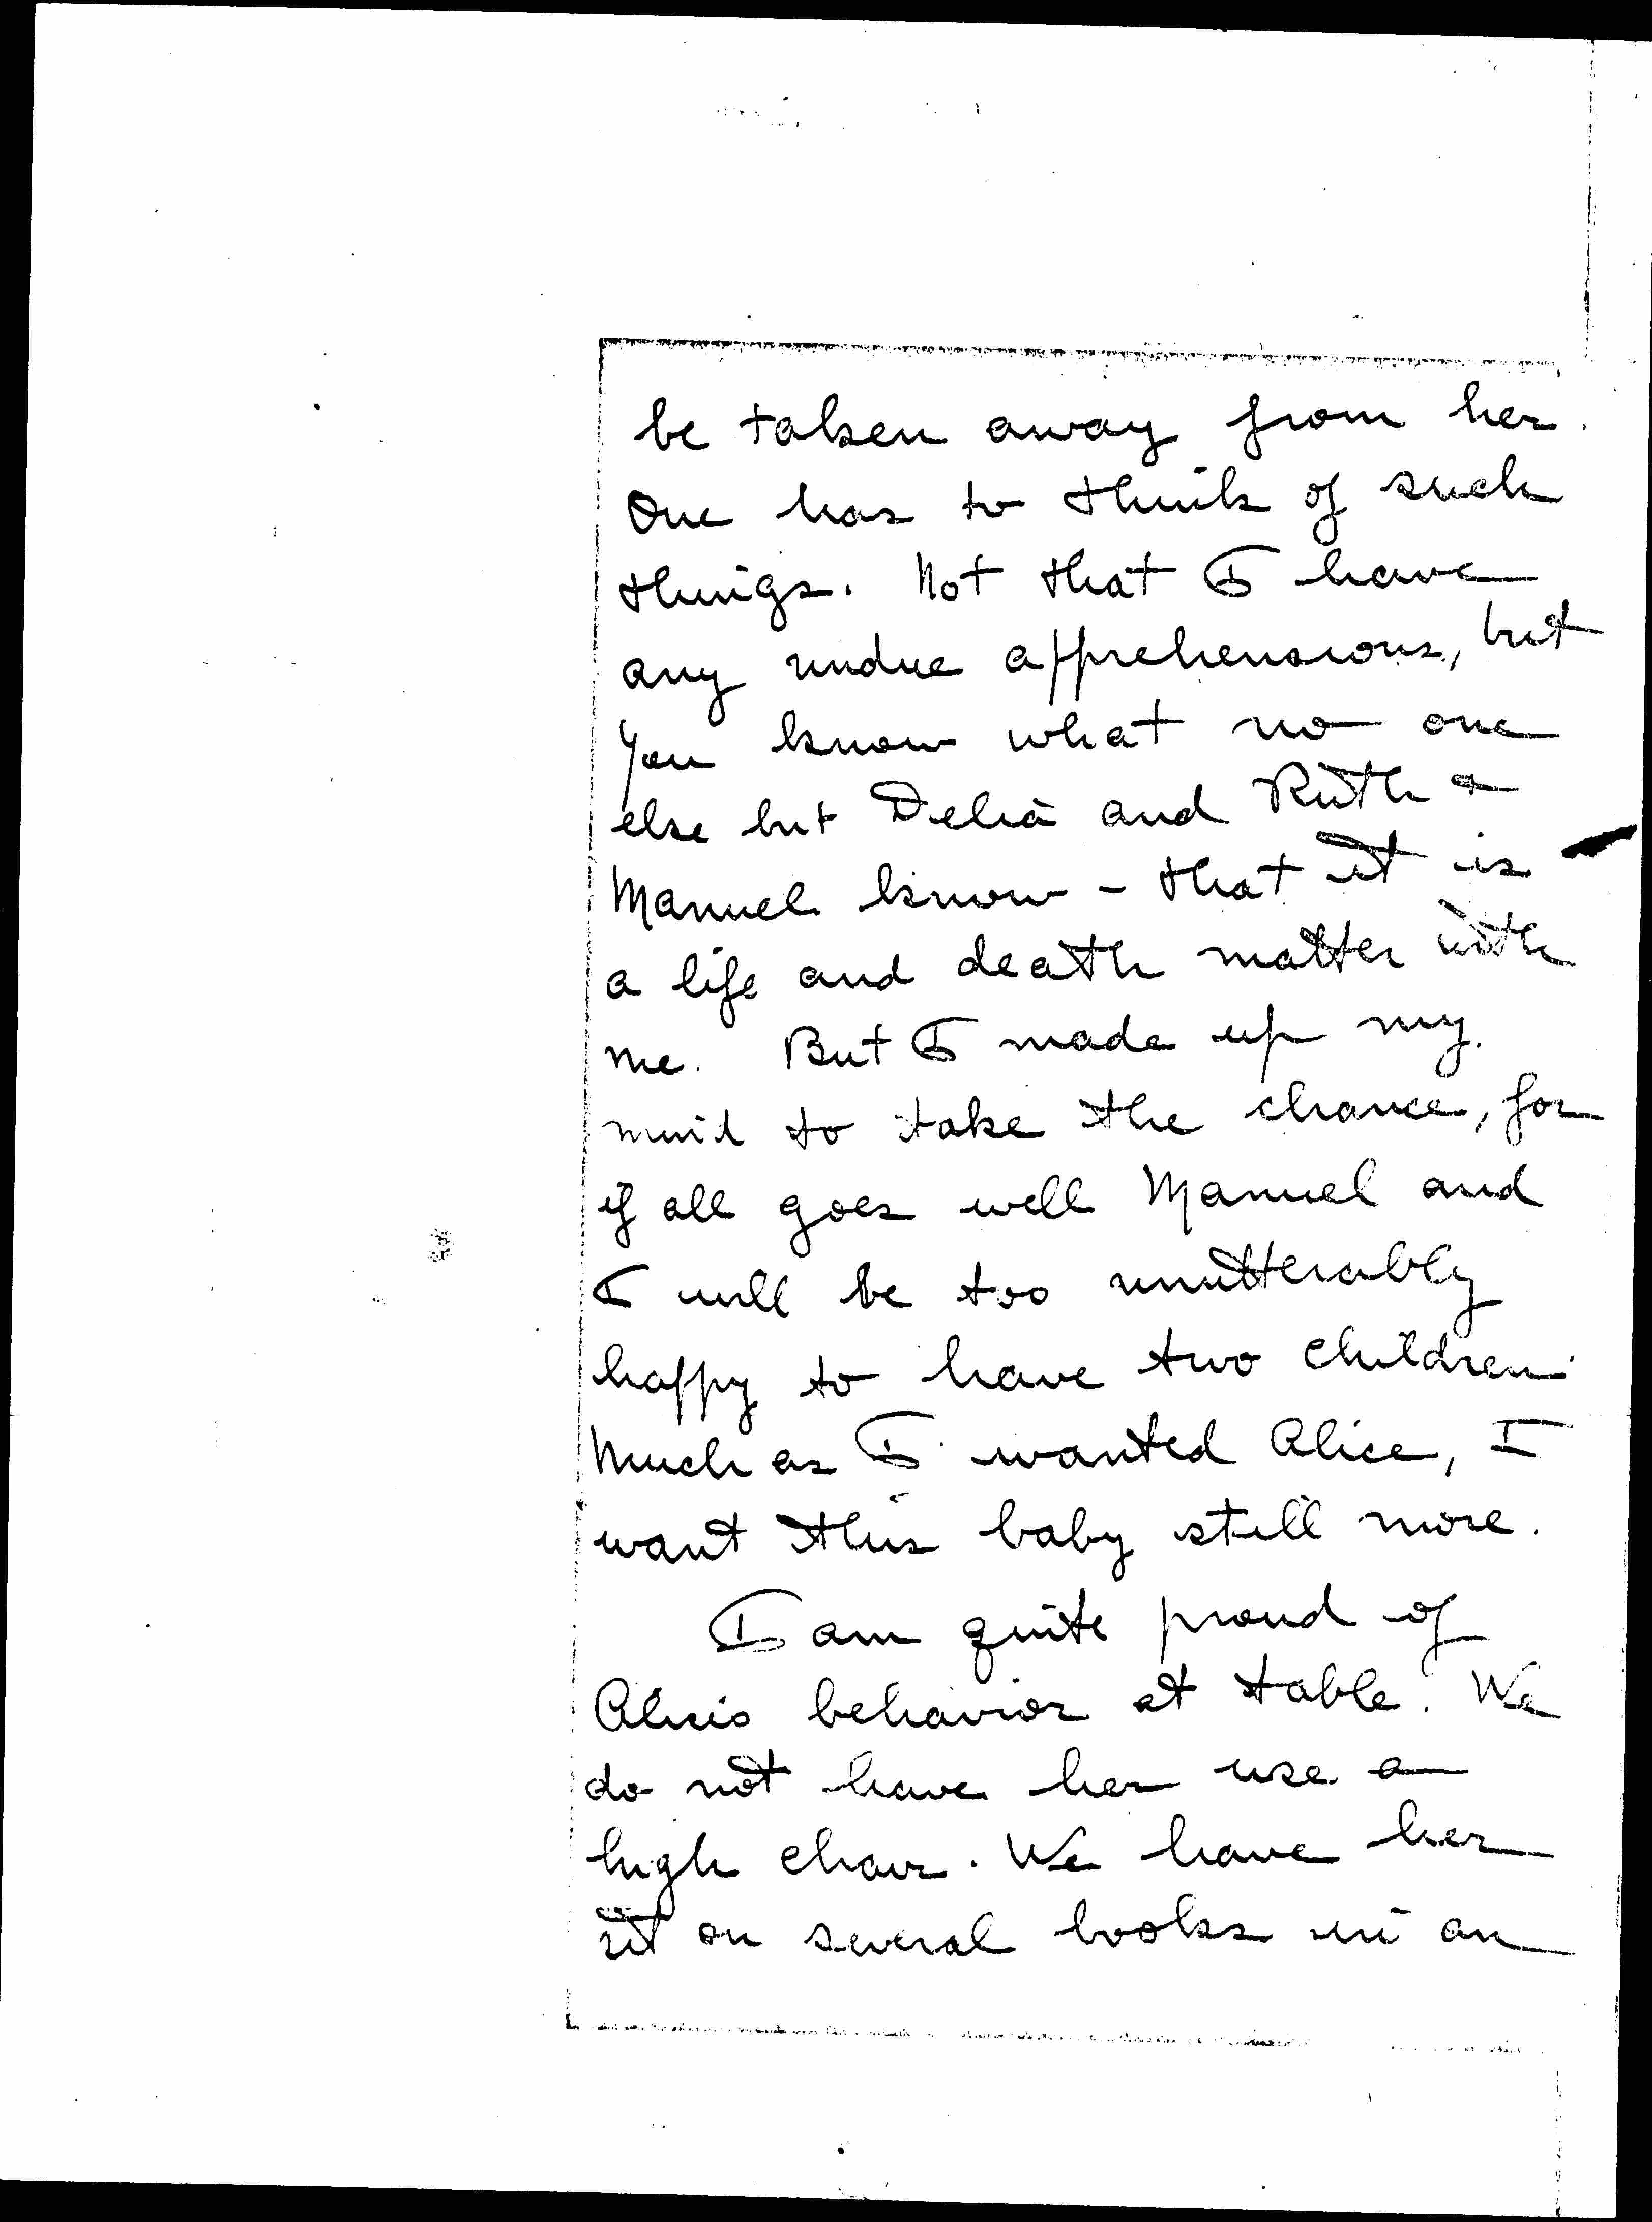 be taken away from her.
One has to think of such
things. Not that I have
any undue apprehensions, but
you know what no one
else but Delia and Ruth &
Manuel know - that it is
a life and death matter with
me. But I made up my
mind to take the chance, for
if all goes well Manuel and
I will be too unutterably
happy to have two children.
Much as I wanted Alice, I
want this baby still more.
I am quite proud of
behavior at table. We
do not have her use a
high chair. We have her
sit on several books in an